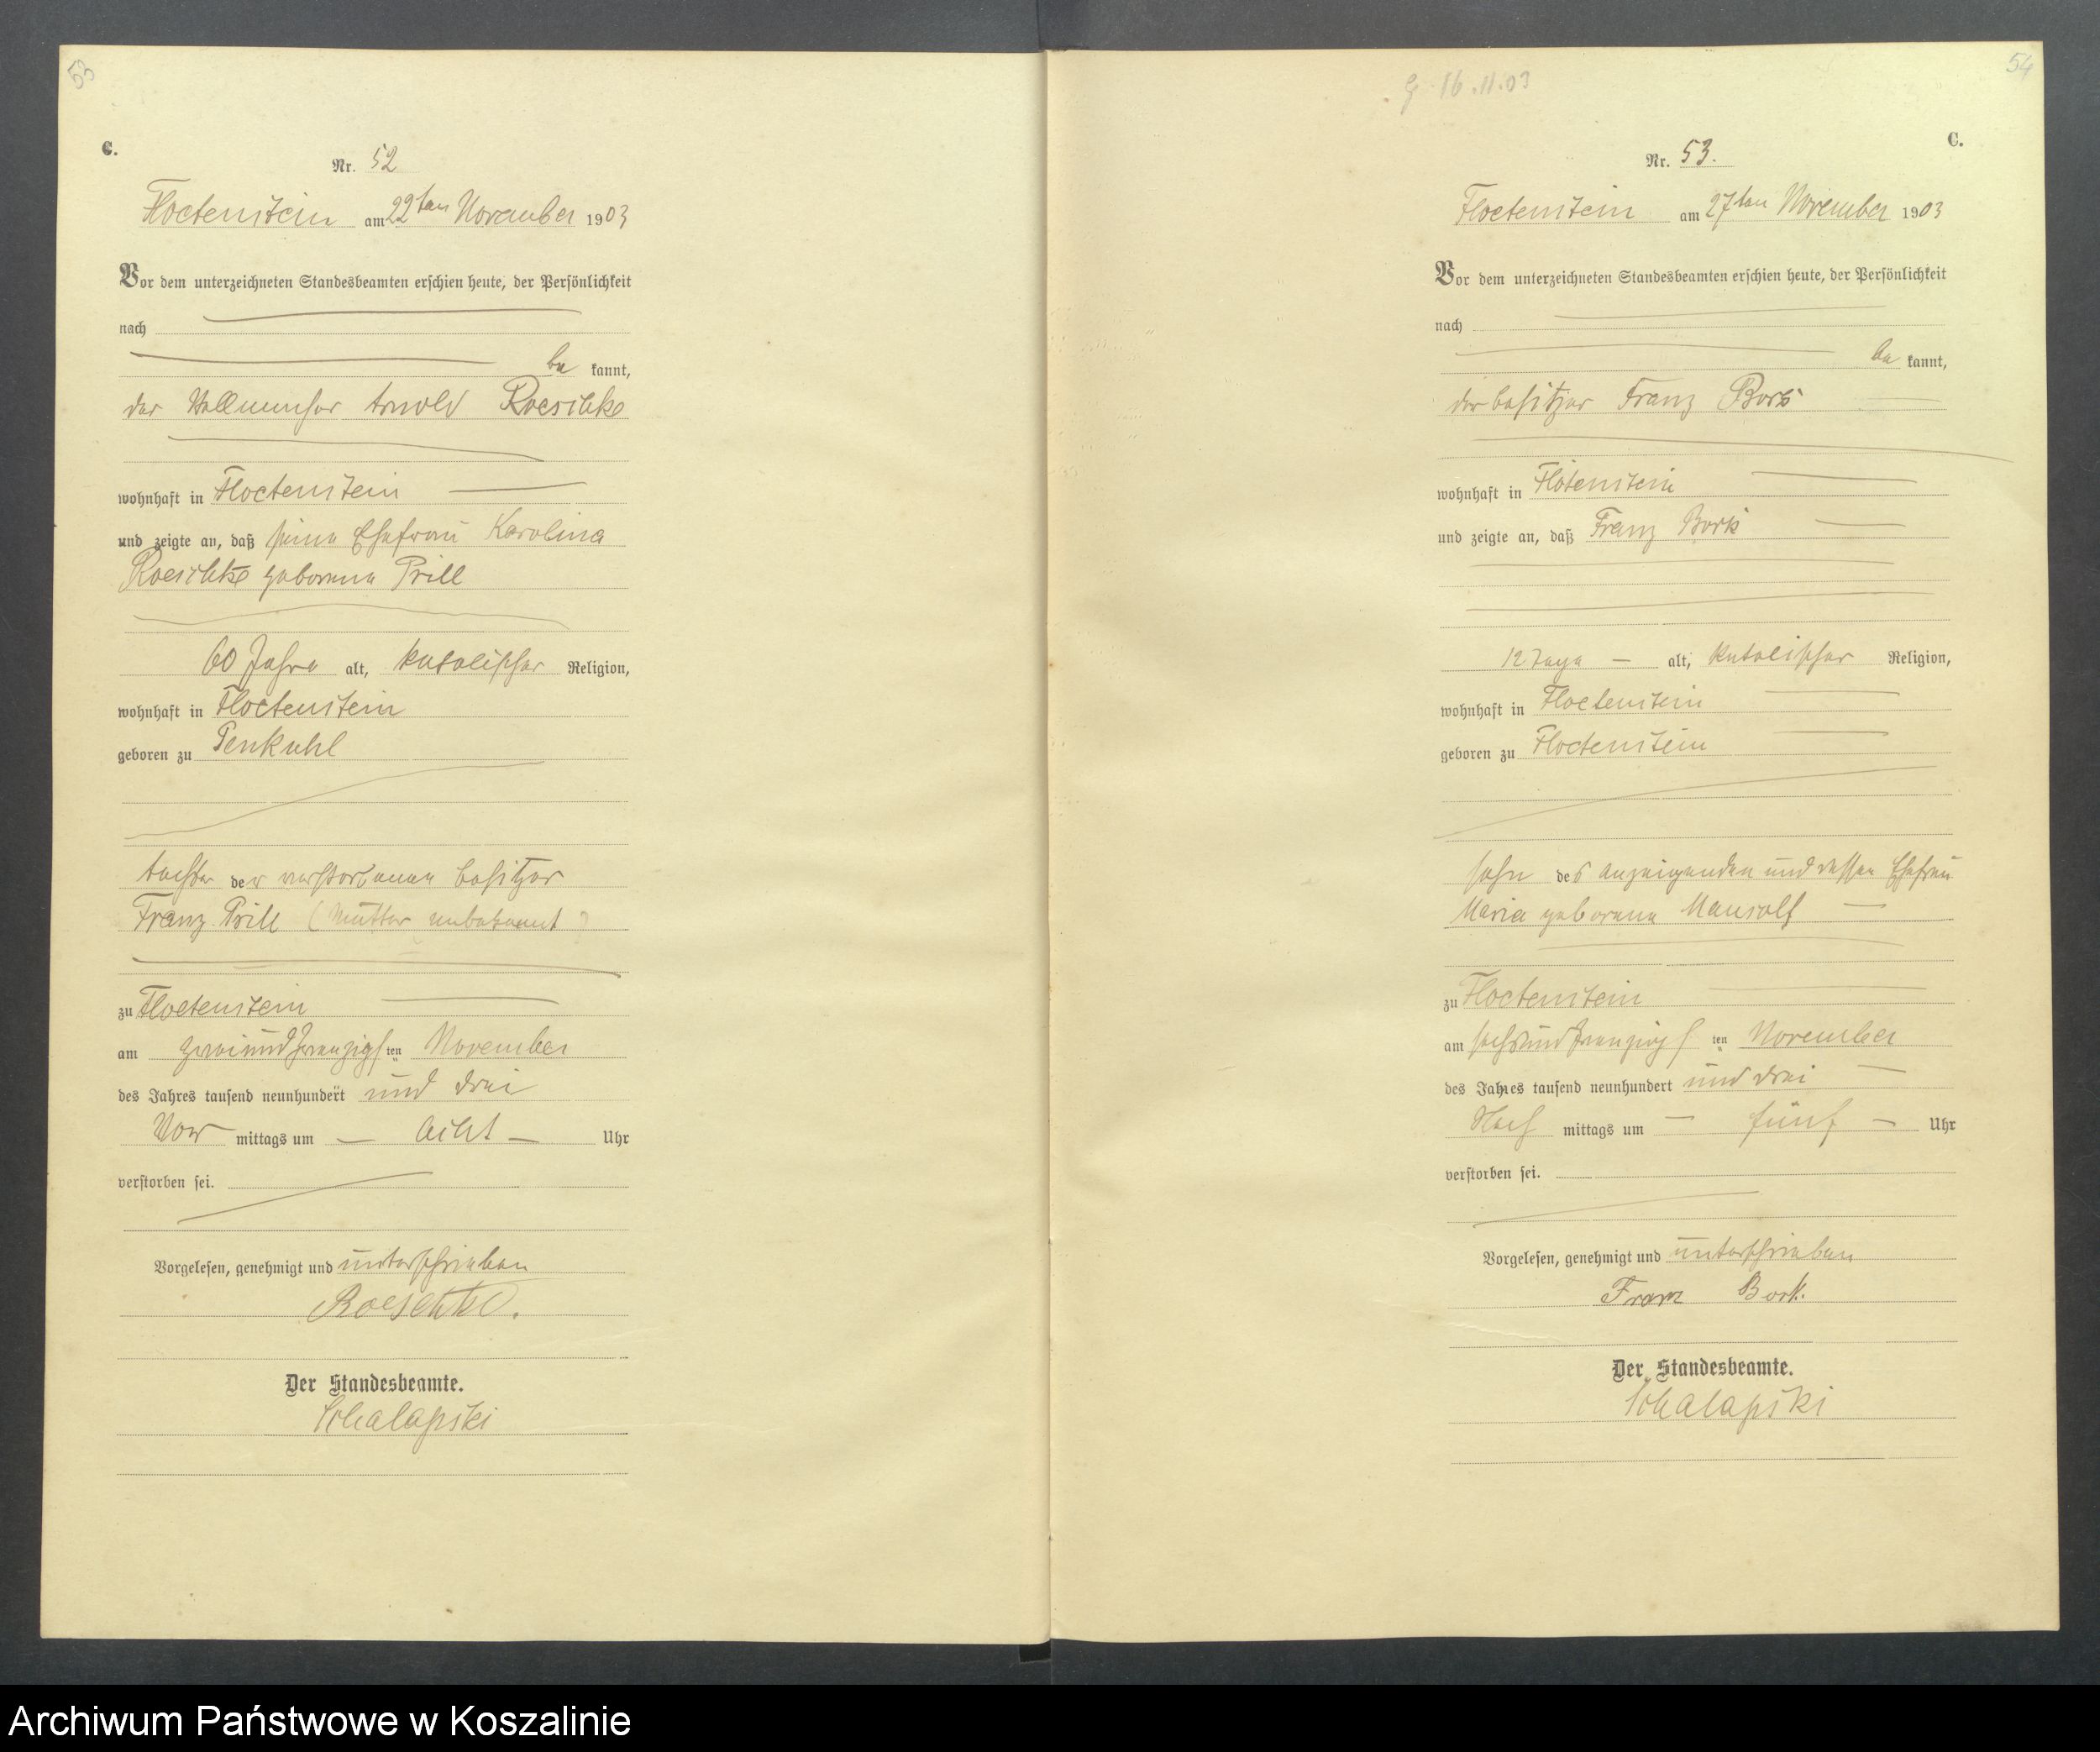 53
C.
Nr. 52
Floetenstein am 22ten November 1903
Vor dem unterzeichneten Standesbeamten erschien heute, der Persönlichkeit
nach
be kannt,
der Arnold Roeschke
wohnhaft in Floetenstein
und zeigte an, daß seine Ehefrau Karolina
Roeschke geborene Prill
60 Jahre alt, katolischer Religion,
wohnhaft in Floetenstein
geboren zu Penkuhl
Tochter der verstorbenen Besitzer
Franz Prill (Mutter unbekannt)
zu Floetenstein
am zweiundzwanzigsten November
des Jahres tausend neunhundert und drei
Vor mittags um acht Uhr
verstorben sei.
Vorgelesen, genehmigt und unterschrieben
Roeschke.
Der Standesbeamte.
Schalapski
54
16.11.03
C.
Nr. 53.
Floetenstein am 27ten November 1903
Vor dem unterzeichneten Standesbeamten erschien heute, der Persönlichkeit
nach
be kannt,
der Besitzer Franz Bork
wohnhaft in Flötenstein
und zeigte an, daß Franz Bork
12 Tage alt, katolischer Religion,
wohnhaft in Floetenstein
geboren zu Floetenstein
Sohn des Anzeigenden und dessen Ehefrau
Maria geborene Mausolf
zu Floetenstein
am sechsundzwanzigsten November
des Jahres tausend neunhundert und drei
Nach mittags um fünf Uhr
verstorben sei.
Vorgelesen, genehmigt und unterschrieben
Franz Bork.
Der Standesbeamte.
Schalapski
Archiwum Państwowe w Koszalinie